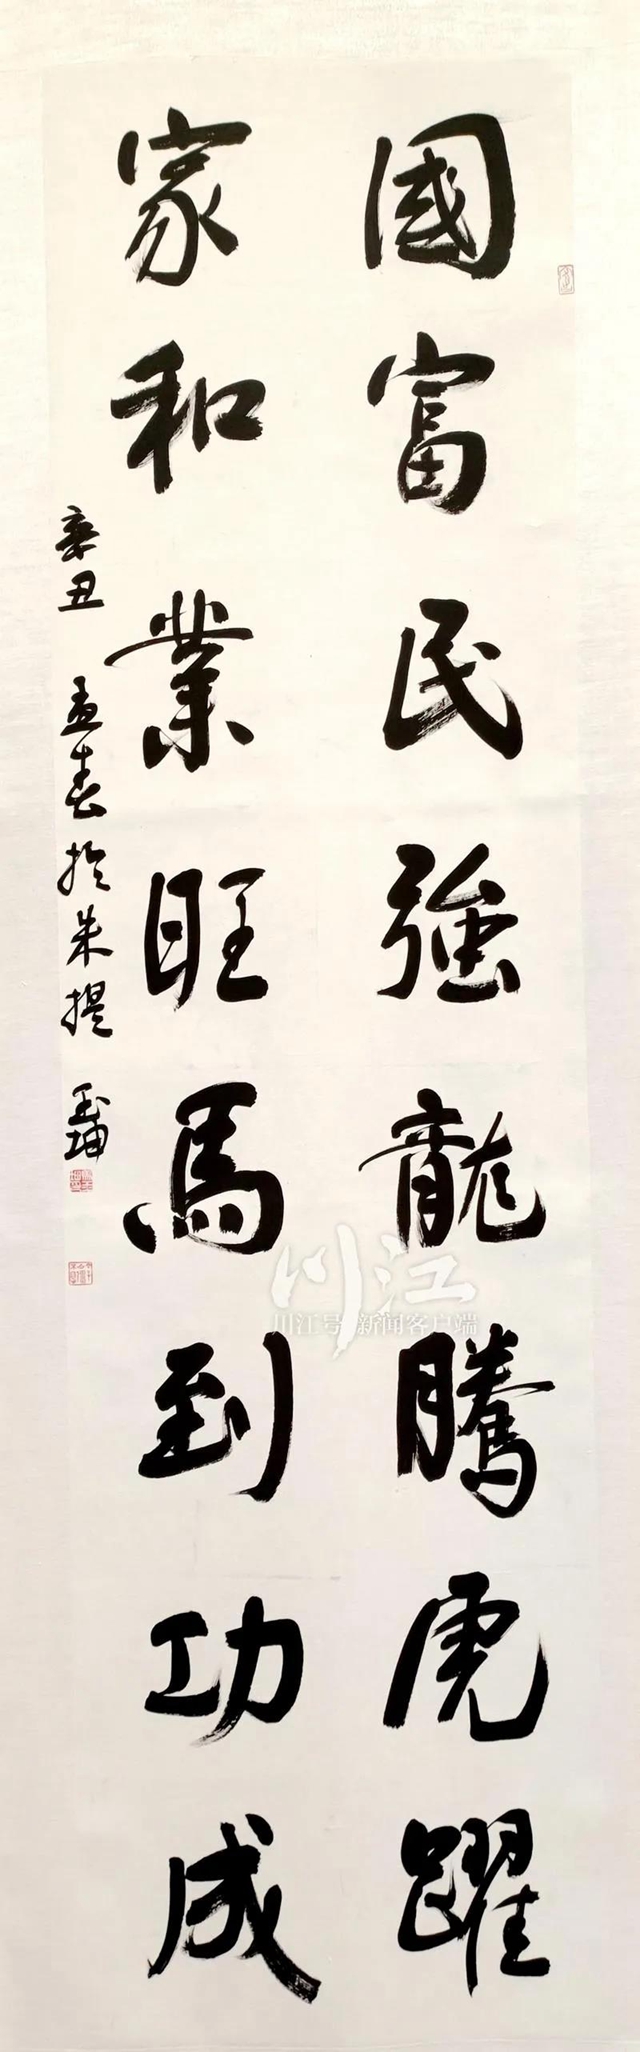 國富民強龍騰虎躍
家和業旺馬到功成
辛丑 孟春於朱提 玉坤
川江
川江号 新闻客户端